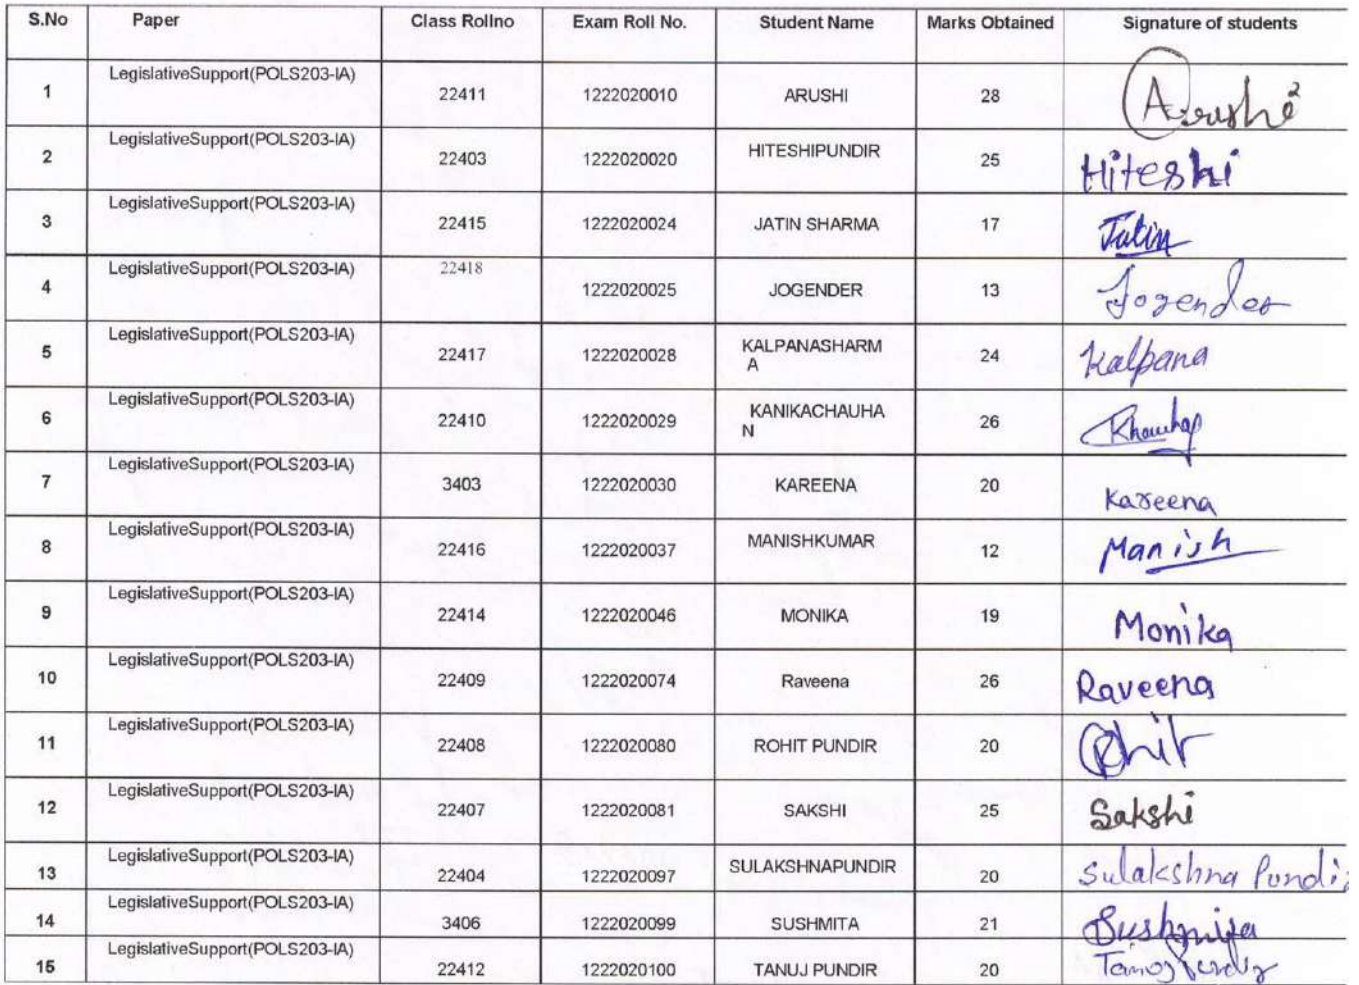 S.No Paper Class Rollno Exam Roll No. Student Name Marks Obtained Signature of students
1 LegislativeSupport(POLS203-IA) 22411 1222020010 ARUSHI 28 Arushi
2 LegislativeSupport(POLS203-IA) 22403 1222020020 HITESHIPUNDIR 25 Hiteshi
3 LegislativeSupport(POLS203-IA) 22415 1222020024 JATIN SHARMA 17 Jatin
4 LegislativeSupport(POLS203-IA) 22418 1222020025 JOGENDER 13 Jogender
5 LegislativeSupport(POLS203-IA) 22417 1222020028 KALPANASHARM
A 24 Kalpana
6 LegislativeSupport(POLS203-IA) 22410 1222020029 KANIKACHAUHA
N 26
7 LegislativeSupport(POLS203-IA) 3403 1222020030 KAREENA 20 Kareena
8 LegislativeSupport(POLS203-IA) 22416 1222020037 MANISHKUMAR 12 Manish
9 LegislativeSupport(POLS203-IA) 22414 1222020046 MONIKA 19 Monika
10 LegislativeSupport(POLS203-IA) 22409 1222020074 Raveena 26 Raveena
11 LegislativeSupport(POLS203-IA) 22408 1222020080 ROHIT PUNDIR 20 Rohit
12 LegislativeSupport(POLS203-IA) 22407 1222020081 SAKSHI 25 Sakshi
13 LegislativeSupport(POLS203-IA) 22404 1222020097 SULAKSHNAPUNDIR 20 Sulakshna Pundir
14 LegislativeSupport(POLS203-IA) 3406 1222020099 SUSHMITA 21 Sushmita
15 LegislativeSupport(POLS203-IA) 22412 1222020100 TANUJ PUNDIR 20 Tanuj Pundir